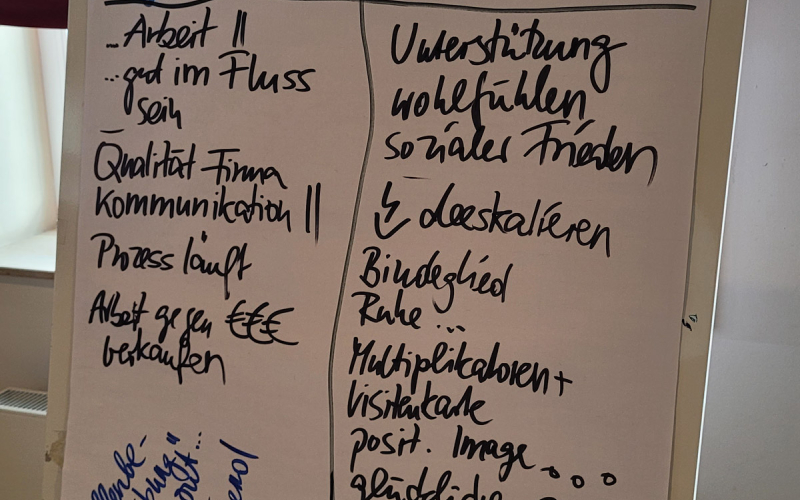 ...Arbeit ||
...gut im Fluss
sein
Qualität Firma
Kommunikation ||
Prozess läuft
Arbeit gegen €€€
verkaufen
Unterstützung
wohlfühlen
sozialer Frieden
deeskalieren
Bindeglied
Ruhe ...
Multiplikatoren+
Visitenkarte
posit. Image